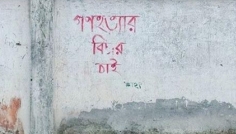 গণহত্যার
বিচার
চাই